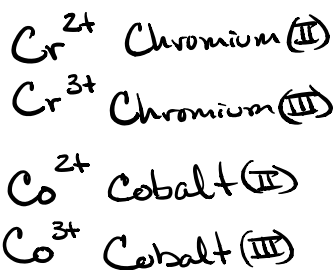 Cr²⁺ Chromium (II)
Cr³⁺ Chromium (III)
Co²⁺ Cobalt (II)
Co³⁺ Cobalt (III)